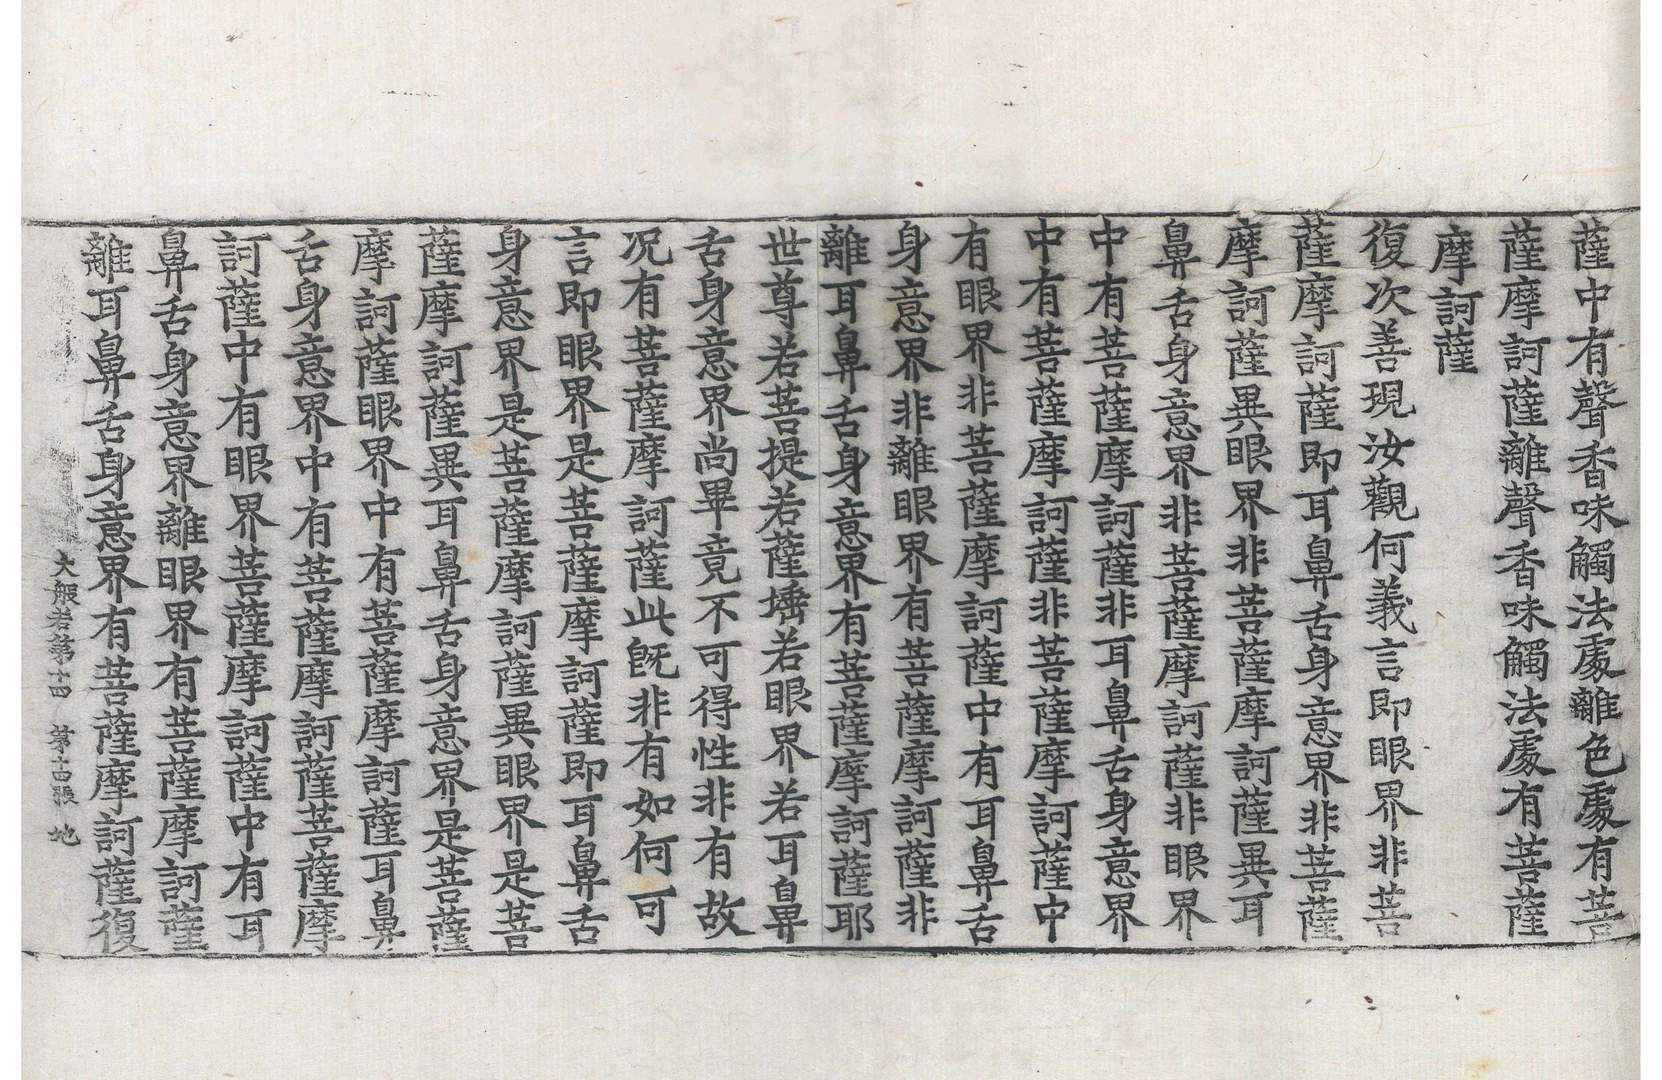 薩中有聲香味觸法處離色處有菩
薩摩訶薩離聲香味觸法處有菩薩
摩訶薩
復次善現汝觀何義言即眼界非菩
薩摩訶薩即耳鼻舌身意界非菩薩
摩訶薩異眼界非菩薩摩訶薩異耳
鼻舌身意界非菩薩摩訶薩非眼界
中有菩薩摩訶薩非耳鼻舌身意界
中有菩薩摩訶薩非菩薩摩訶薩中
有眼界非菩薩摩訶薩中有耳鼻舌
身意界非離眼界有菩薩摩訶薩非
離耳鼻舌身意界有菩薩摩訶薩耶
世尊若菩提若薩埵若眼界若耳鼻
舌身意界尚畢竟不可得性非有故
况有菩薩摩訶薩此旣非有如何可
言即眼界是菩薩摩訶薩即耳鼻舌
身意界是菩薩摩訶薩異眼界是菩
薩摩訶薩異耳鼻舌身意界是菩薩
摩訶薩眼界中有菩薩摩訶薩耳鼻
舌身意界中有菩薩摩訶薩菩薩摩
訶薩中有眼界菩薩摩訶薩中有耳
鼻舌身意界離眼界有菩薩摩訶薩
離耳鼻舌身意界有菩薩摩訶薩復
大般若第十四 第十四張 地